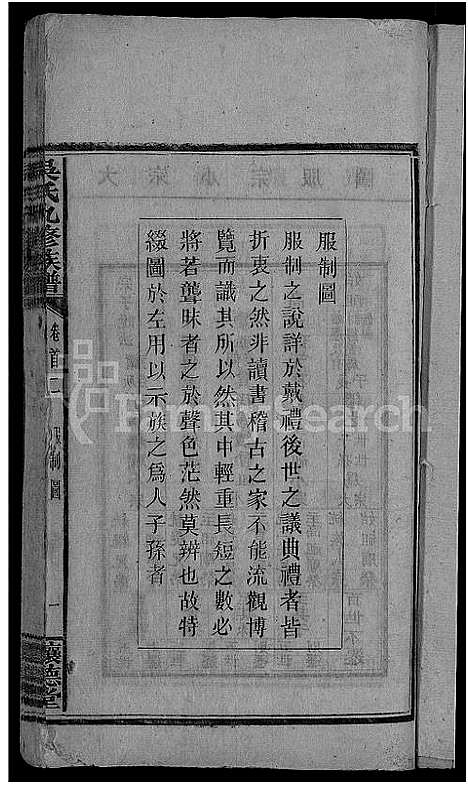 服制圖
服制之說詳於戴禮後世之議典禮者皆
折衷之然非讀書稽古之家不能流觀博
覽而識其所以然其中輕重長短之數必
將若聾昧者之於聲色茫然莫辨也故特
綴圖於左用以示族之爲人子孫者
吳氏九修族譜
卷首二
服制圖
一
讓德堂
FamilySearch